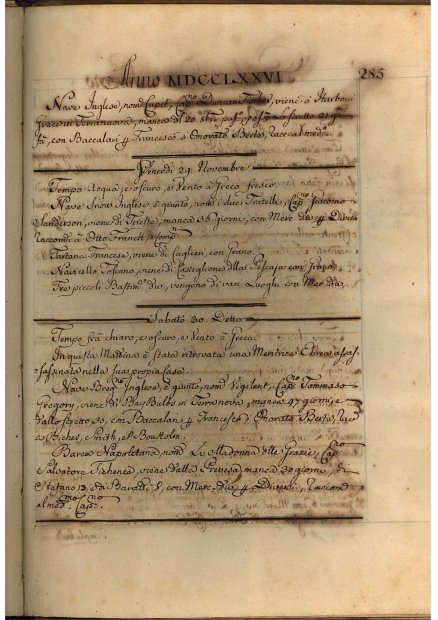 Anno MDCCLXXVI 285
Nave Inglese, nom Cupit, Cap.no Duncan Fisher, viene d Harbour
grace in Terranuova, manca di 20 8bre pass.
con Baccalari p Francesco e Onorato Berte, race al med.o
Venerdì 29. Novembre
Tempo Acqua, e oscuro, e Vento à Greco fresco.
Nave Snow Inglese è quivito, nom i due Fratelli, Cap.no Giacomo
Sanderson, viene di Trieste, manca 36 giorni, con Merc div p Divõi
raccom. à Otto Franch, e comp.i
Tartana Francese, viene di Caglieri, con Grano
Navicello Toscano, viene di Castiglione della Pescaja con Grano
Tre piccoli Bastim. div, vengono di vari Luoghi con Mer div
Sabato 30. Detto
Tempo frà chiaro, e oscuro, e Vento à Greco.
In questa Mattina è stata ritrovata una Meretrice Ebrea assas-
sassinata nella sua propria Casa.
Nave Brig.no Inglese, è quivito, nom Vigilent, Cap.no Tommaso
Gregory, viene di Bulbs in Terranova, manca 47 giorni, e
dallo stretto 10, con Baccalari p Francesco d Onorato Berte, racc
a Bichers, Smith, e
Barca Napoletana nom La Madonna delle Grazie, Cap.no
Salvatore viene dalla Prevesa, manca 30 giorni, di
13, da 5, con Merc. div p Diversi, raccom
al med. Cap.no